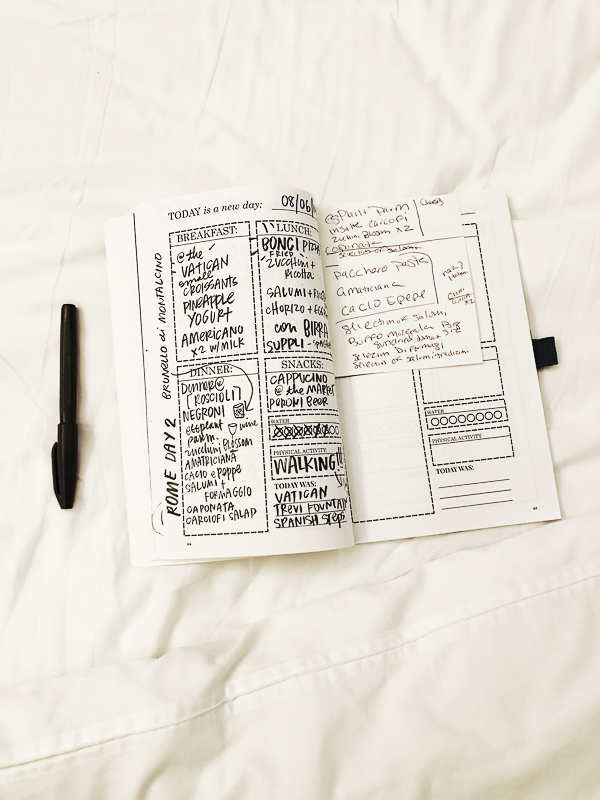 TODAY is a new day:
08/06/
BREAKFAST:
@ the
VATICAN
small
CROISSANTS
PINEAPPLE
YOGURT
AMERICANO
x2 w/MILK
LUNCH:
BONCI PIZZA
FRIED
ZUCCHINI +
RICOTTA
SALUMI +
CHORIZO + EGG
con BIRRA
SUPPLI -
DINNER:
Dinner @
[ROSCIOLI]
NEGRONI
wine
eggplant
parm.
zucchini BLOSSOM
AMATRICIANA
CACIO e PEPPE
SALUMI +
FORMAGGIO
CAPONATA
CARCIOFI SALAD
SNACKS:
CAPPUCINO
@ the MARKET
PORONI BEER
WATER
PHYSICAL ACTIVITY:
WALKING!!
TODAY WAS:
VATICAN
TREVI FOUNTAIN
SPANISH STEPS
ROME DAY 2
BRUNELLO di MONTALCINO
Parm
Carciofi
Zuchini Blossom x2
Caponata
Selection of Salumi
pacchero paste
amatriciana
cacio Epepe
Selection of Salumi
Selection of Salumi
WATER
PHYSICAL ACTIVITY:
TODAY WAS: